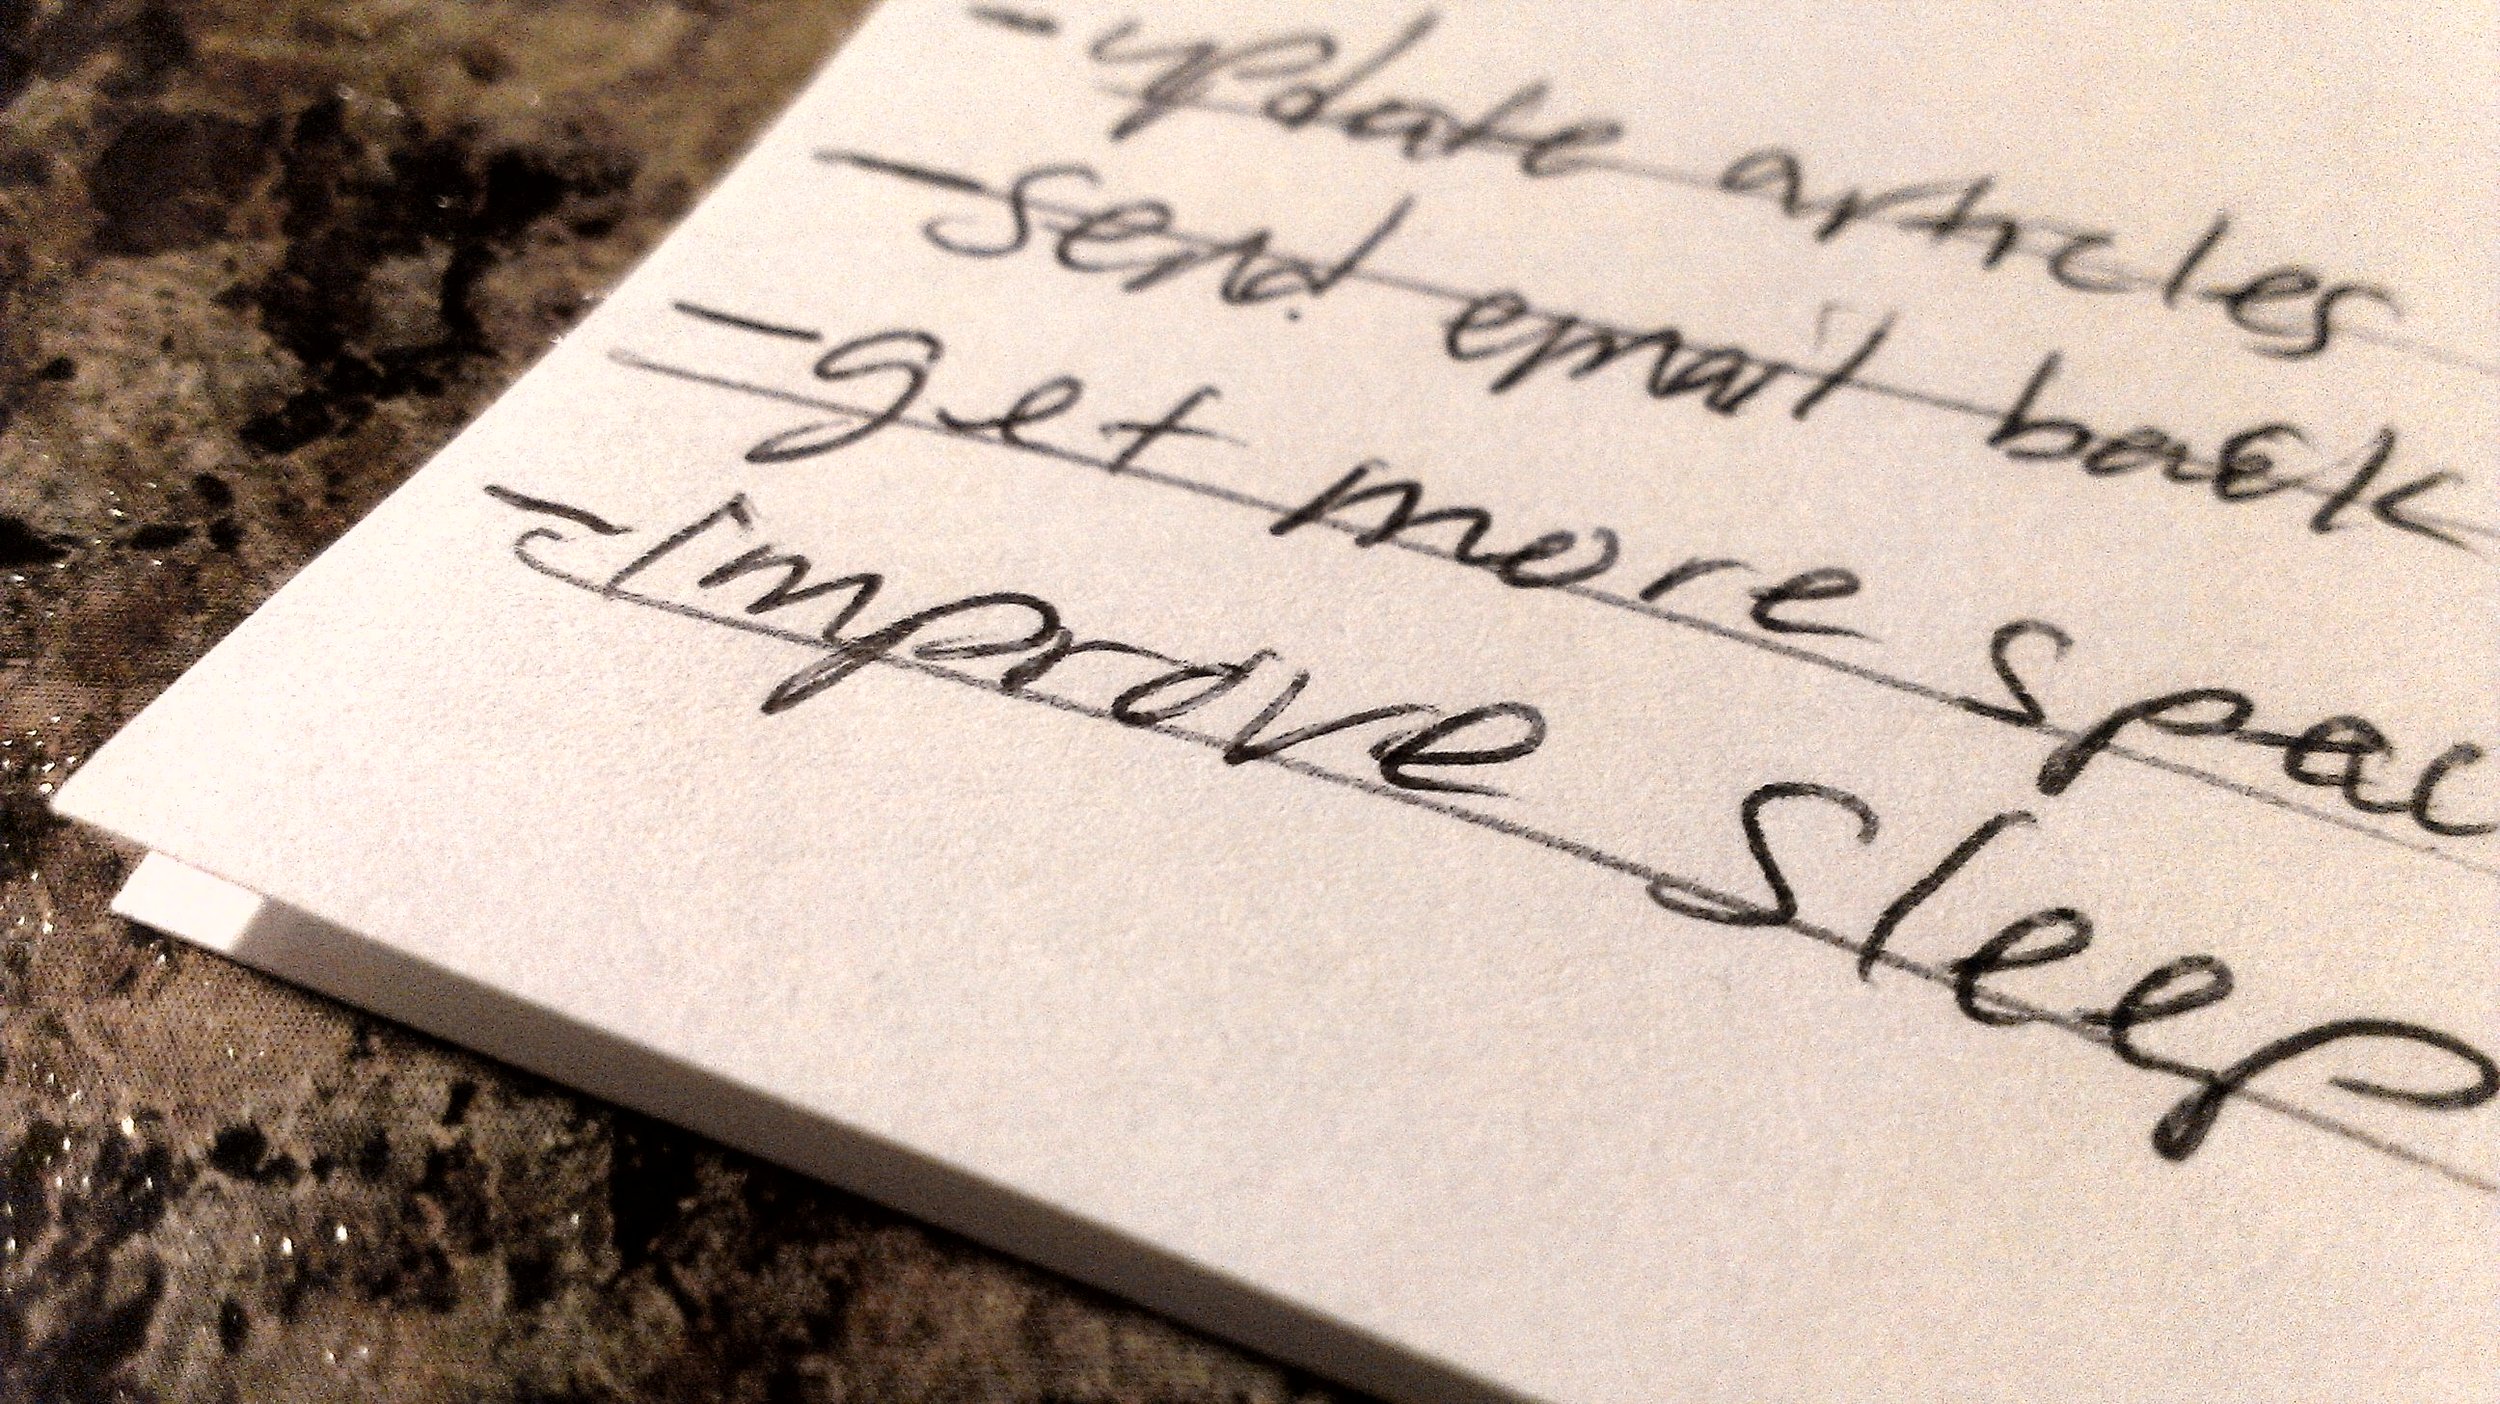 - update articles
- send email back
- get more spac
- Improve Sleep